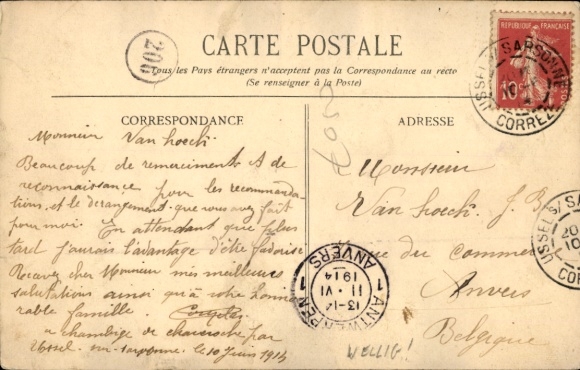 200
CARTE POSTALE
Tous les Pays étrangers n'acceptent pas la Correspondance au recto
(Se renseigner à la Poste)
CORRESPONDANCE
Monsieur Van hoech
Beaucoup de remerciments & de
reconnaissance pour les recommanda-
tions, et le dérangement que vous avez fait
pour moi. En attendant que plus
tard j'aurais l'avantage d'être favorisé
Recevez cher Monsieur mes meilleurs
salutations ainsi qu'à votre hono-
rable famille.
a chambige de chaveroche par
Ussel sur sarsonne le 10 Juin 1914
ADRESSE
Monsieur
Van hoech J. B
rue du commerce
Anvers
Belgique
REPUBLIQUE FRANÇAISE
10
USSEL S/ SARSONNE
CORREZE
USSEL S/ SA
20
10
CO
1 ANTWERPEN 1
13-14
11 VI
1914
ANVERS
WELLIG!